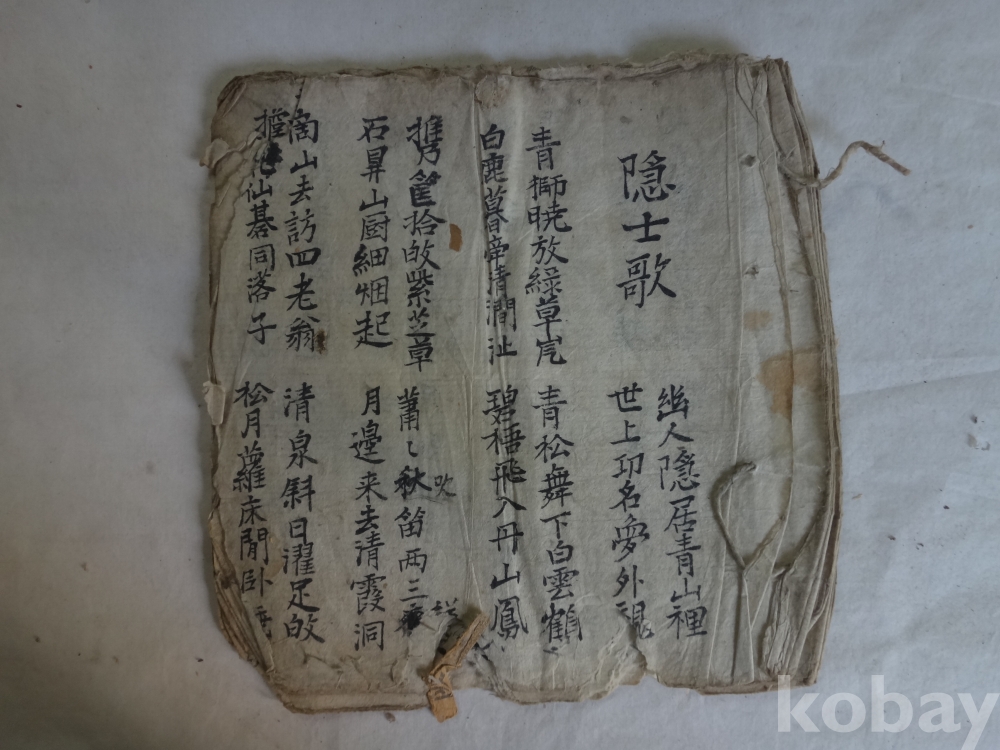 隠士歌
幽人隠居青山裡
世上功名夢外視
青獅暁放綠草
青松舞下白雲鶴
白鹿暮牽清澗沚
碧梧飛入丹山鳳
携筐拾的紫芝草
蕭〻秋笛両三
吹
石鼎山厨細烟起
月邊来去清霞洞
商山去訪四老翁
清泉斜日濯足的
仙碁同落子
松月蘿床閒卧
kobay